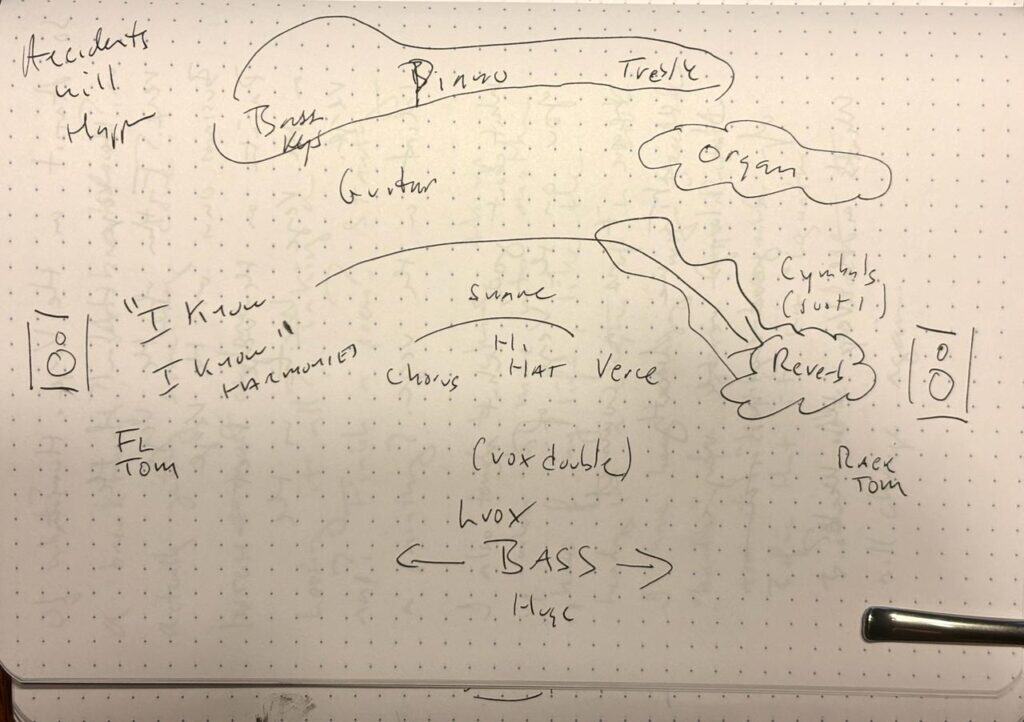 Accidents
will
Happ
Piano
Treble
Bass
Keys
Organ
Guitar
"I Know
I Know"
HARMONIES
Snare
Hi
HAT
Chorus
Verce
Cymbals
(suoti)
Reverb
FL
TOM
(vox double)
RACK
TOM
Lvox
BASS
Huge